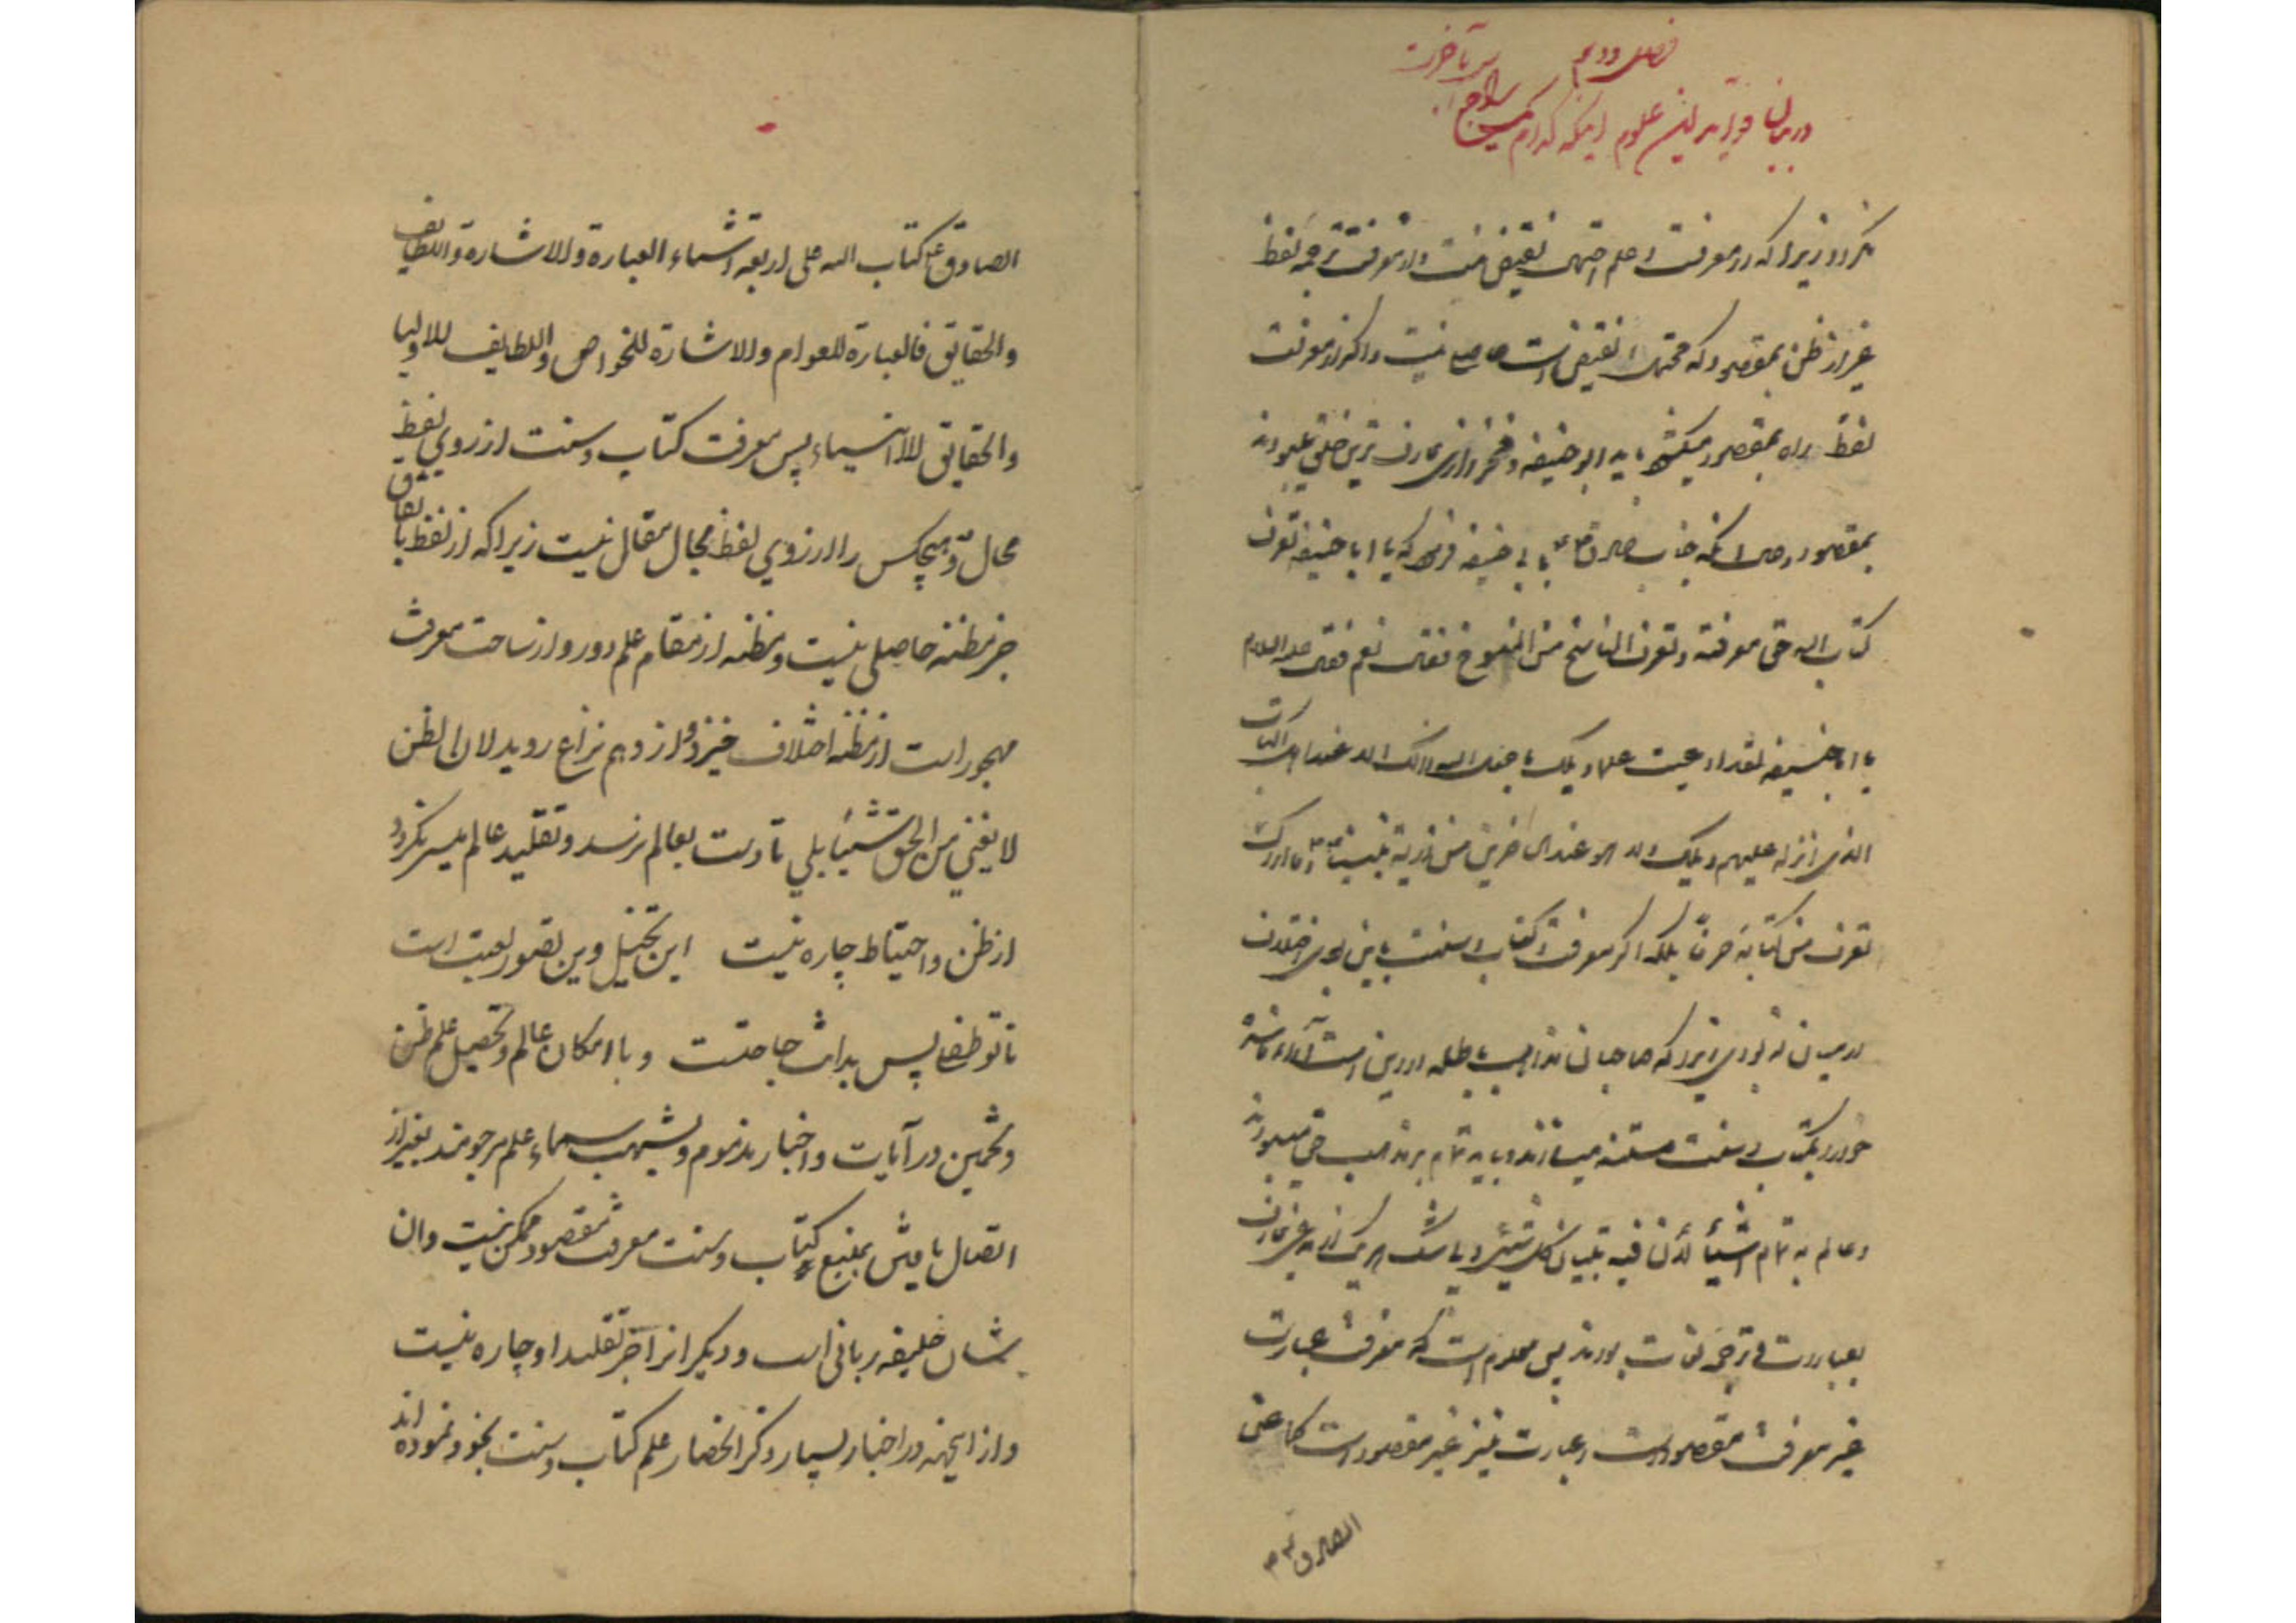 فصل دویم
در بیان فواید این علوم اینکه کدام یک محتاج الیه آخرت
نکردد زیرا که در معرفت و علم احتمال نقیض نیست و در معرفت ترجمه لفظ
غیر از ظن بمقصود که محتمل النقیض است حاصل نیست و اگر از معرفت
لفظ راه بمقصود میکشود باید ابو حنیفه و فخر رازی عارف ترین خلق بودند
بمقصود و حال انکه جناب صادق ع بابی حنیفه فرمود که یا ابا حنیفه تعرف
کتاب اله حق معرفته و تعرف الناسخ من المنسوخ فقال نعم فقال علیه السلام
یا ابا حنیفه لقد ادعیت علما ویلک ما جعل اله ذلک الا عند اهل الکتاب
الذی انزله علیهم ویلک ولا هو عند الخاص من ذریة نبینا ص و ما اراک
تعرف من کتابه حرفا بلکه اگر معرفت کتاب و سنت باین بودی اختلاف
در میان نه بودی زیرا که صاحبان مذاهب باطله در دین است آراء فاسده
خود را بکتاب و سنت مستند میسازند و باید تمام بر مذهب حق میبودند
و عالم به تمام اشیأ لأن فیه تبیان کل شیئ و بی شک هر یک از اهل عرف عارف
بعبارت و ترجمه لغات بودند پس معلوم است که معرفت عبارت
غیر معرفت مقصود است و عبارت نیز غیر مقصود است کما عن
الصادق ع
الصادق ع کتاب اله علی اربعة اشیاء العبارة والاشارة واللطایف
والحقایق فالعبارة للعوام والاشارة للخواص واللطایف للاولیا
والحقایق للانبیاء پس معرفت کتاب و سنت از روی لفظ
محال و هیچکس را از روی لفظ مجال مقال نیست زیرا که از لفظ باتفاق
جز مظنه حاصلی نیست و مظنه از مقام علم دور و از ساحت معرفت
مهجور است از مظنه اختلاف خیزد و از وهم نزاع روید لان الظن
لا یغنی من الحق شیئا بلی تا دست بعالم نرسد و تقلید عالم میسر نکردد
از ظن و احتیاط چاره نیست این تخیل وین تصور لعبت است
تا تو طفلی پس بدانت حاجتست و با امکان عالم و تحصیل علم ظن
و تخمین در آیات و اخبار مذموم و بشهب سماء علم مرجومند بغیر از
اتصال یا فیش بمنبع کتاب و سنت معرفت مقصود ممکن نیست وان
شان خلیفه ربانی است و دیکرانرا جز تقلید او چاره نیست
و از اینجهة در اخبار بسیار ذکر انحصار علم کتاب و سنت بخود نموده اند